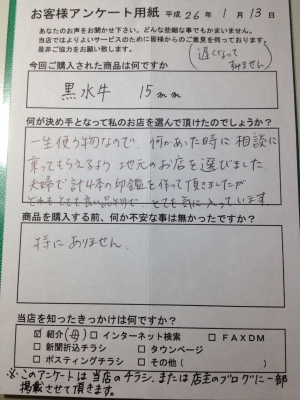 お客様アンケート用紙 平成 26 年 1 月 13 日
あなたのお声をお聞かせ下さい。どんな些細な事でもかまいません。
当店ではよりよいサービスのために皆様からのご意見を伺っております。
是非ご協力をお願い致します。
遅くなって
すみません
今回ご購入された商品は何ですか
黒水牛 15mm
何が決め手となって私のお店を選んで頂けたのでしょうか?
一生使う物なので、何かあった時に相談に
乗ってもらえるよう 地元のお店を選びました
夫婦で計4本の印鑑を作って頂きましたが
とても良い品物で、とても気に入っています。
商品を購入する前、何か不安な事は無かったですか?
特にありません。
当店を知ったきっかけは何ですか?
☑ 紹介(母) □ インターネット検索 □ FAXDM
□ 新聞折込チラシ □ タウンページ
□ ポスティングチラシ □ その他( )
※このアンケートは当店のチラシ、または店主のブログに一部
掲載させて頂きます。